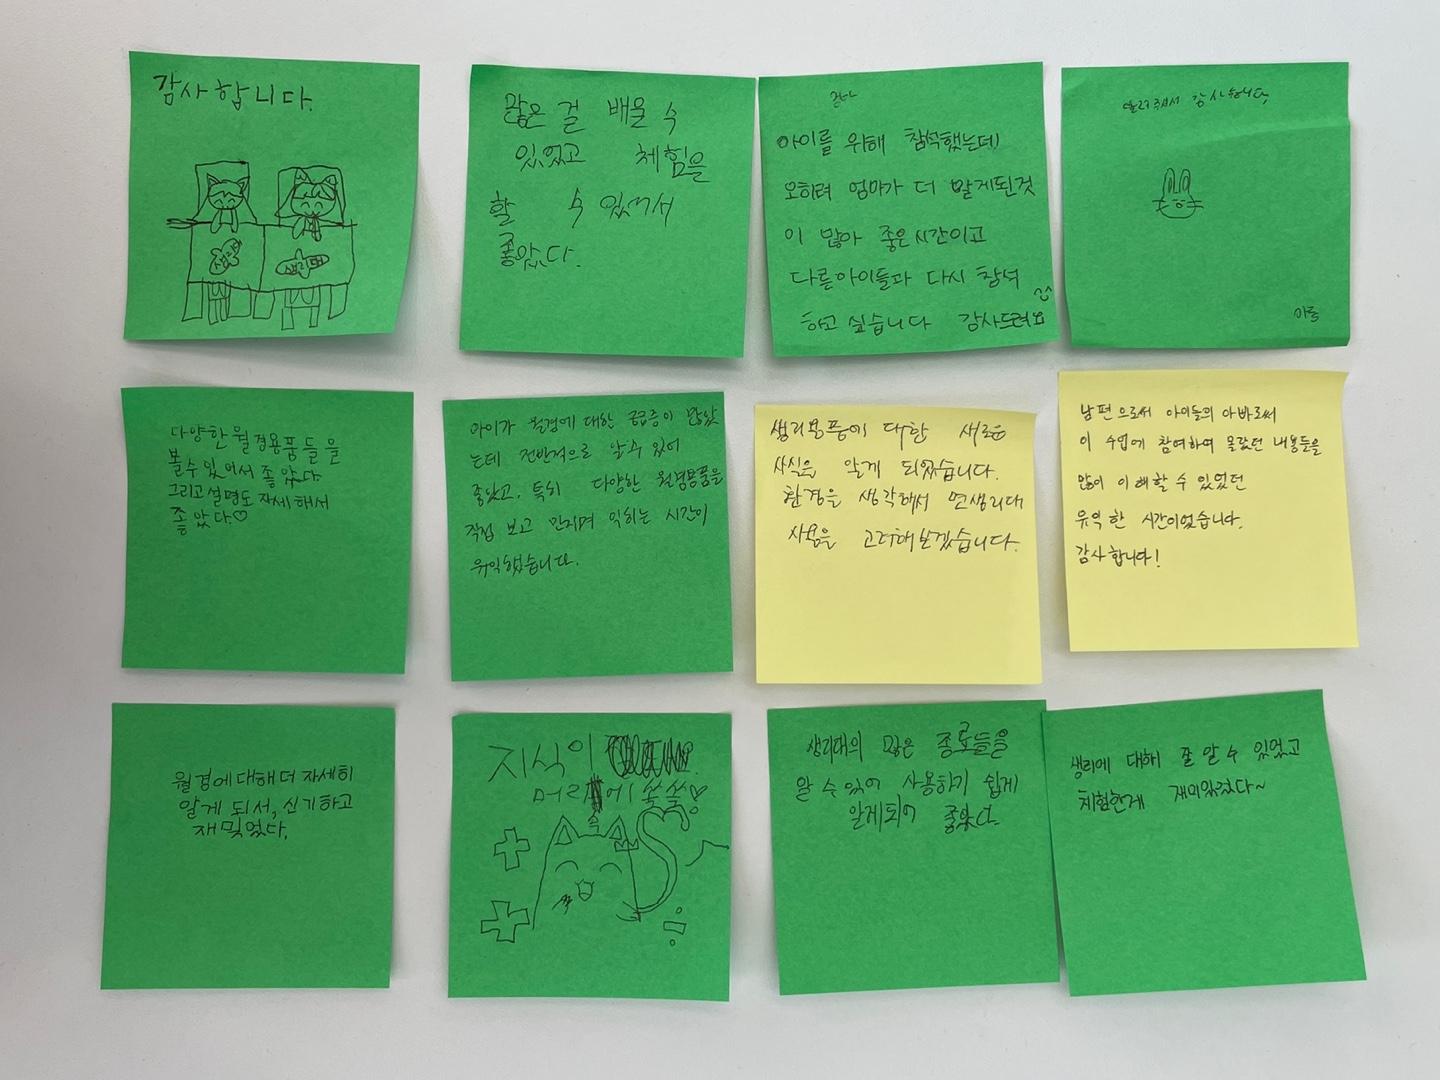 감사합니다.
생리대
많은 걸 배울 수
있었고 체험을
할 수 있어서
좋았다.
아이를 위해 참석했는데
오히려 엄마가 더 알게된것
이 많아 좋은시간이고
다른아이들과 다시 참석
하고 싶습니다 감사드려요
알려주셔서 감사합니다,
다양한 월경용품들을
볼수있어서 좋았다.
그리고설명도 자세해서
좋았다♡
아이가 월경에 대한 궁금증이 많았
는데 전반적으로 알수 있어
좋았고, 특히 다양한 월경용품을
직접 보고 만지며 익히는 시간이
유익했습니다.
생리용품에 대한 새로운
사실을 알게 되었습니다.
환경을 생각해서 면생리대
사용을 고려해보겠습니다.
남편으로써 아이들의 아빠로써
이 수업에 참여하며 몰랐던 내용들을
많이 이해할 수 있었던
유익한 시간이었습니다.
감사합니다!
월경에대해더 자세히
알게 되서, 신기하고
재밌었다,
지식이
머리에 쏙쏙♡
생리대의 많은 종류들을
알 수 있어 사용하기 쉽게
알게되어 좋았다.
생리에 대해 잘 알 수 있었고
체험한게 재미있었다~